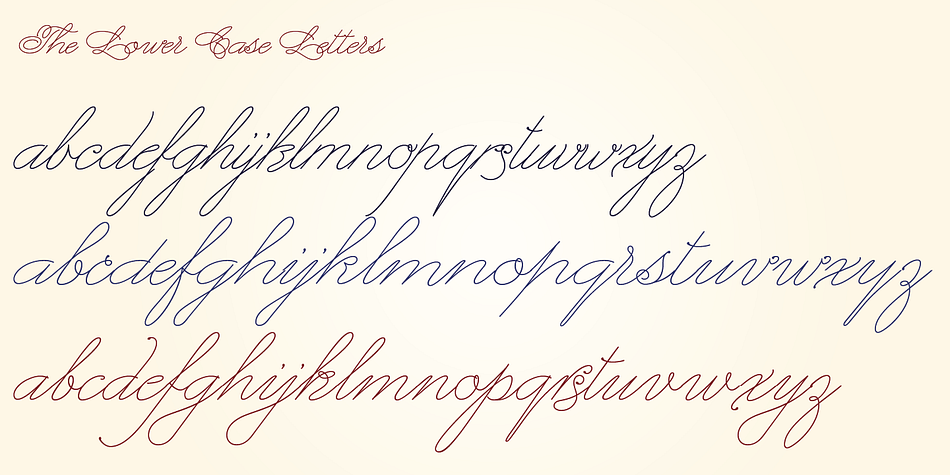 The Lower Case Letters
abcdefghijklmnopqrstuvwxyz
abcdefghijklmnopqrstuvwxyz
abcdefghijklmnopqrstuvwxyz